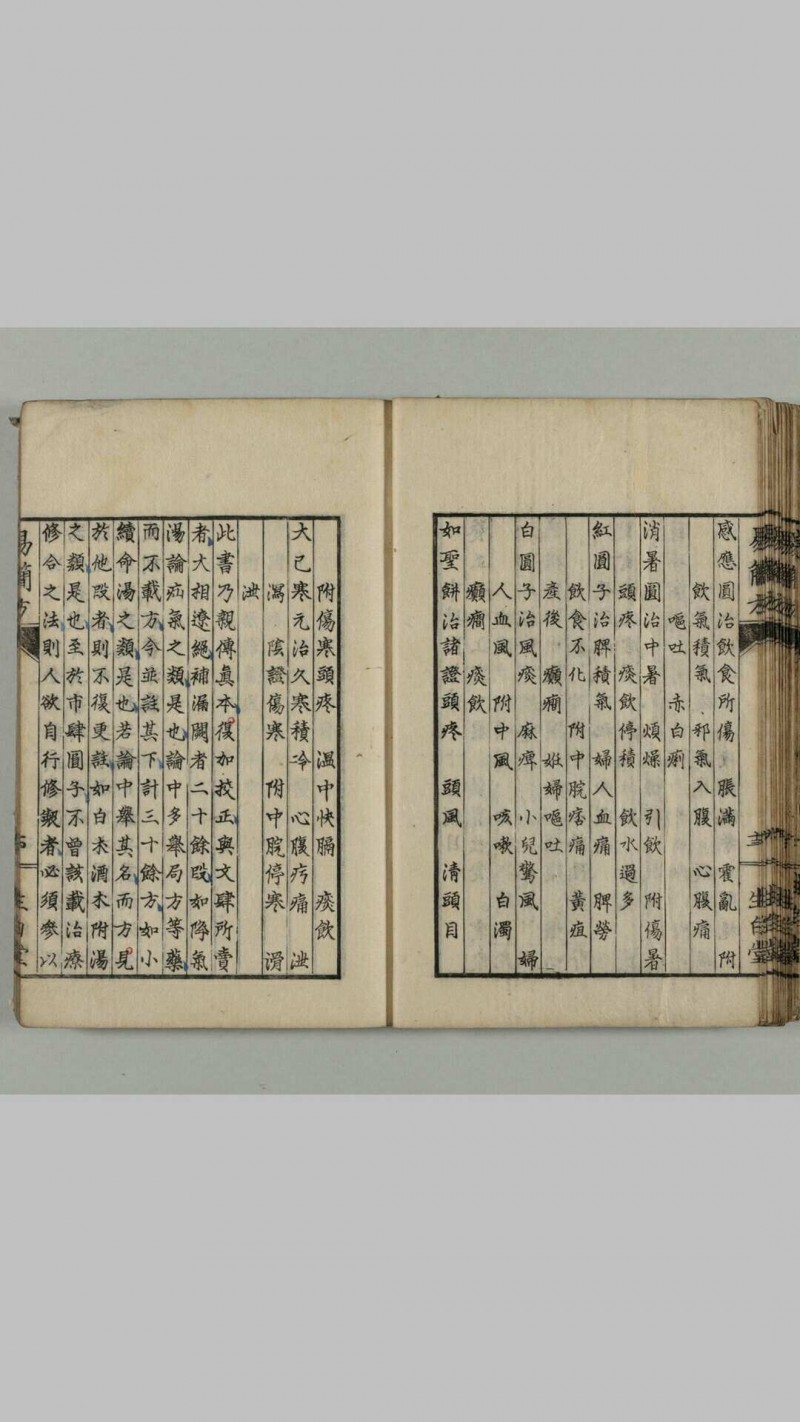 感應圓治飲食所傷 脹滿 霍亂 附
飲氣積氣 邪氣入腹 心腹痛
嘔吐 赤白痢
消暑圓治中暑 煩燥 引飲 附傷暑
頭疼 痰飲停積 飲水過多
紅圓子治脾積氣 婦人血痛 脾勞
飲食不化 附中脘痞痛 黃疸
產後 癲癇 姙婦嘔吐
白圓子治風痰 麻痺 小兒驚風 婦
人血風 附中風 咳嗽 白濁
癲癇 痰飲
如聖餅治諸證頭疼 頭風 清頭目
附傷寒頭疼 溫中快膈 痰飲
大已寒元治久寒積冷 心腹疞痛 泄
瀉 陰證傷寒 附中脘停寒 滑
泄
此書乃親傳眞本復加挍正與文肆所賣
者大相遼絕補漏闕者二十餘叚如降氣
湯論疝氣之類是也論中多舉局方等藥
而不載方今並註其下計三十餘方如小
續命湯之類是也若論中舉其名而方見
於他叚者則不復更註如白朮酒朮附湯
之類是也至於市肆圓子不曾該載治療
修合之法則人欲自行修製者必須參以
易簡方